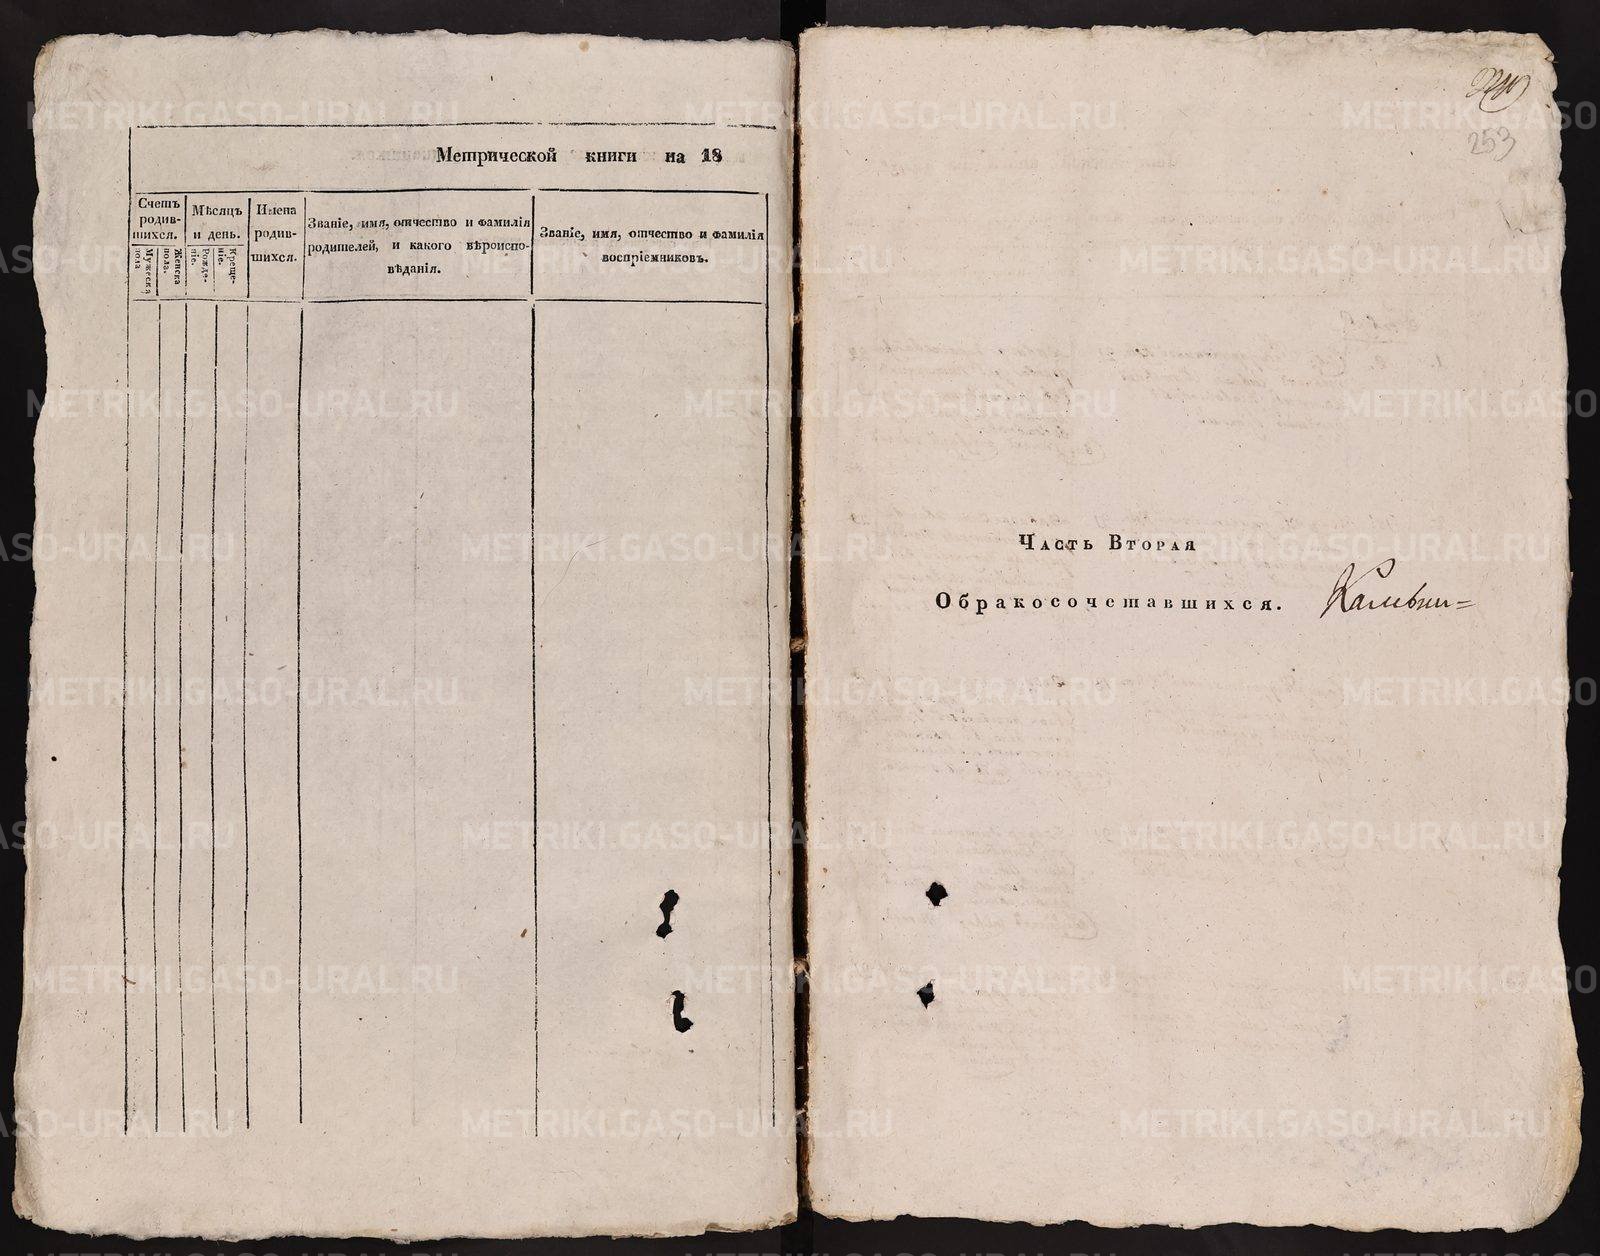 Метрической книги на 18
Счетъ родив-шихся.
Мѣсяцъ и день.
Имена родив-шихся.
Званіе, имя, отчество и фамилія
родителей, и какого вѣроиспо-
вѣданія.
Званіе, имя, отчество и фамилія
воспріемниковъ.
Мужеска пола
Женска пола.
Рожде-ніе.
Креще-ніе.
253
Часть Вторая
Обракосочетавшихся.
METRIKI.GASO-URAL.RU